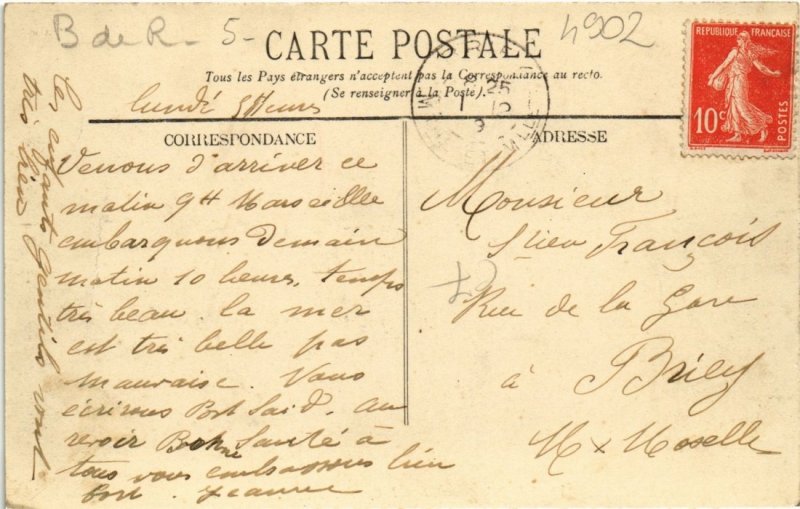 B de R - 5-
4902
CARTE POSTALE
Tous les Pays étrangers n'acceptent pas la Correspondance au recto.
(Se renseigner à la Poste).
REPUBLIQUE FRANÇAISE
10c
POSTES
lundi 5 heures
CORRESPONDANCE
Venons d'arriver ce
matin 9H Marseille
embarquons Demain
matin 10 heures. temps
très beau. la mer
est très belle pas
mauvaise. Vous
écrirons Port Said. au
revoir Bonne Santé à
tous vous embrassons bien
fort. Jeanne
les enfants gentils vont
très bien
ADRESSE
Monsieur
François
Rue de la Gare
à Briey
M x Moselle